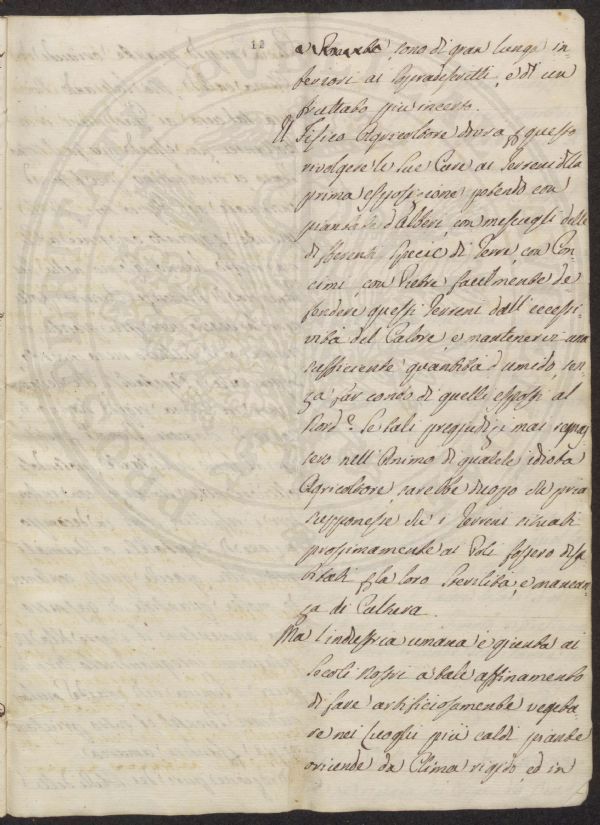 12
a Levante sono di gran lunga in-
feriori ai sopradescritti, e di un
fruttato più incerto.
Il Fisico Agricoltore dovrà per questo
rivolgere le sue Cure ai Terreni della
prima esposizione potendo con
piantate d'Alberi, con mescugli delle
differenti Specie di Terre, con Con-
cimi, con Pietre facilmente di-
fendere questi Terreni dall'eccessi-
vità del Calore, e mantenervi una
sufficiente quantità d'umido, sen-
za far conto di quelli esposti al
Nord. Se tali pregiudizi mai regnas-
sero nell'Animo di qualche idiota
Agricoltore sarebbe duopo che pria
supponesse che i Terreni situati
prossimamente ai Poli fossero disa-
bitati per la loro Sterilità, e mancan-
za di Cultura.
Ma l'industria umana è giunta ai
Secoli nostri a tale affinamento
di fare artificiosamente vegeta-
re nei Luoghi più caldi piante
oriunde da Clima rigido, ed in